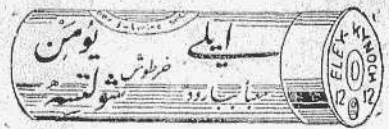 ايلي
يومن
خرطوش
شولتسه
معبأ ببارود
ELEY-KYNOCH
12 12